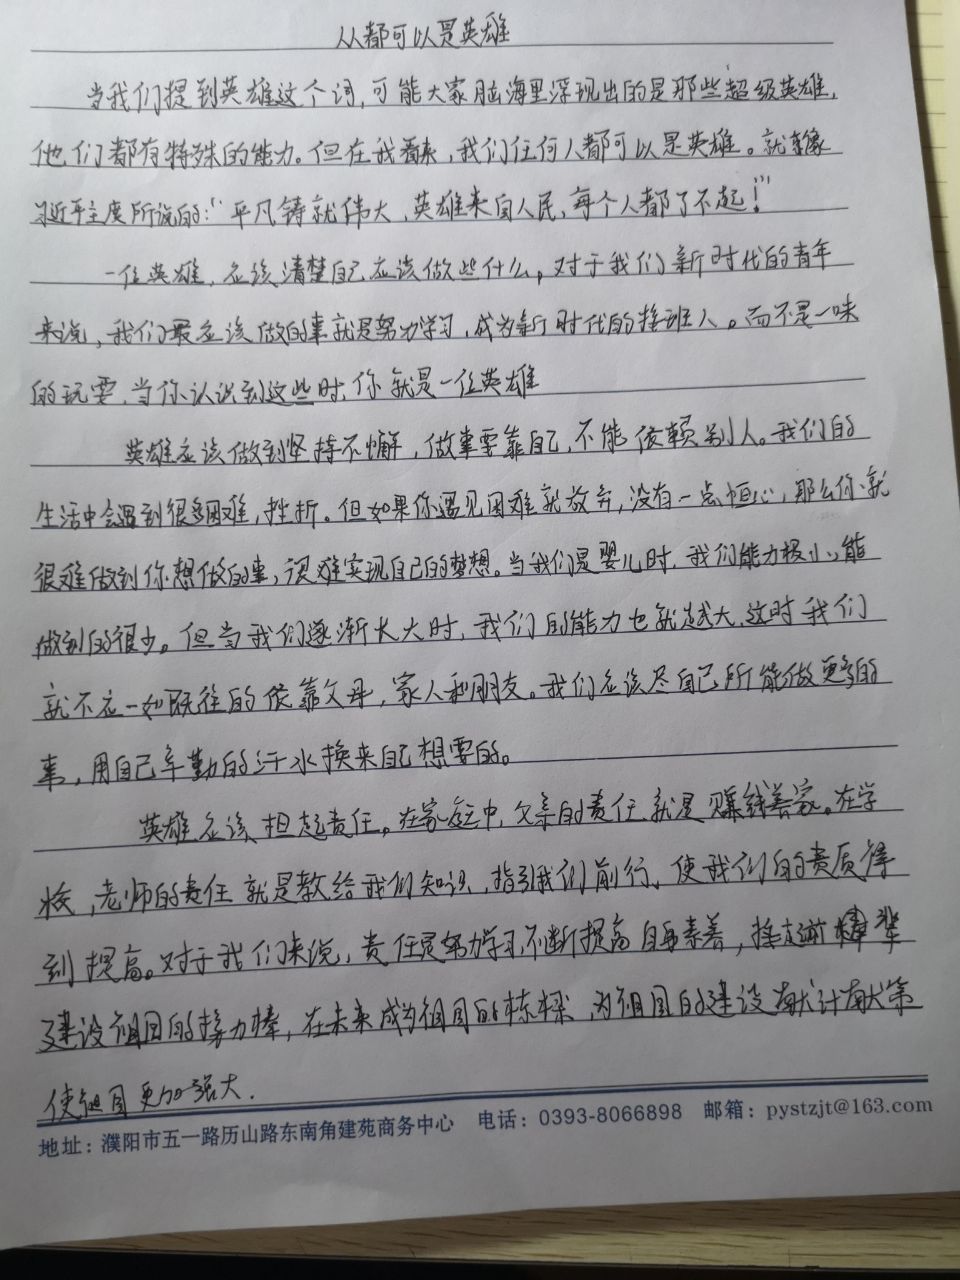 人都可以是英雄
当我们提到英雄这个词,可能大家脑海里浮现出的是那些超级英雄,
他们都有特殊的能力。但在我看来,我们任何人都可以是英雄。就像
习近平主席所说的:“平凡铸就伟大,英雄来自人民,每个人都了不起!”
一位英雄,应该清楚自己应该做些什么。对于我们新时代的青年
来说,我们最应该做的事就是努力学习,成为新时代的接班人。而不是一味
的玩耍,当你认识到这些时,你就是一位英雄
英雄应该做到坚持不懈,做事要靠自己,不能依赖别人。我们的
生活中会遇到很多困难,挫折。但如果你遇见困难就放弃,没有一点恒心,那么你就
很难做到你想做的事,很难实现自己的梦想。当我们是婴儿时,我们能力极小,能
做到的很少。但当我们逐渐长大时,我们的能力也就越大,这时我们
就不应一如既往的依靠父母,家人和朋友。我们应该尽自己所能做更多的
事,用自己辛勤的汗水换来自己想要的。
英雄应该担起责任。在家庭中,父亲的责任就是赚钱养家。在学
校,老师的责任就是教给我们知识,指引我们前行,使我们的素质得
到提高。对于我们来说,责任是努力学习,不断提高自身素养,接过前辈
建设祖国的接力棒,在未来成为祖国的栋梁,为祖国的建设献计献策
使祖国更加强大.
地址:濮阳市五一路历山路东南角建苑商务中心 电话:0393-8066898 邮箱:pystzjt@163.com